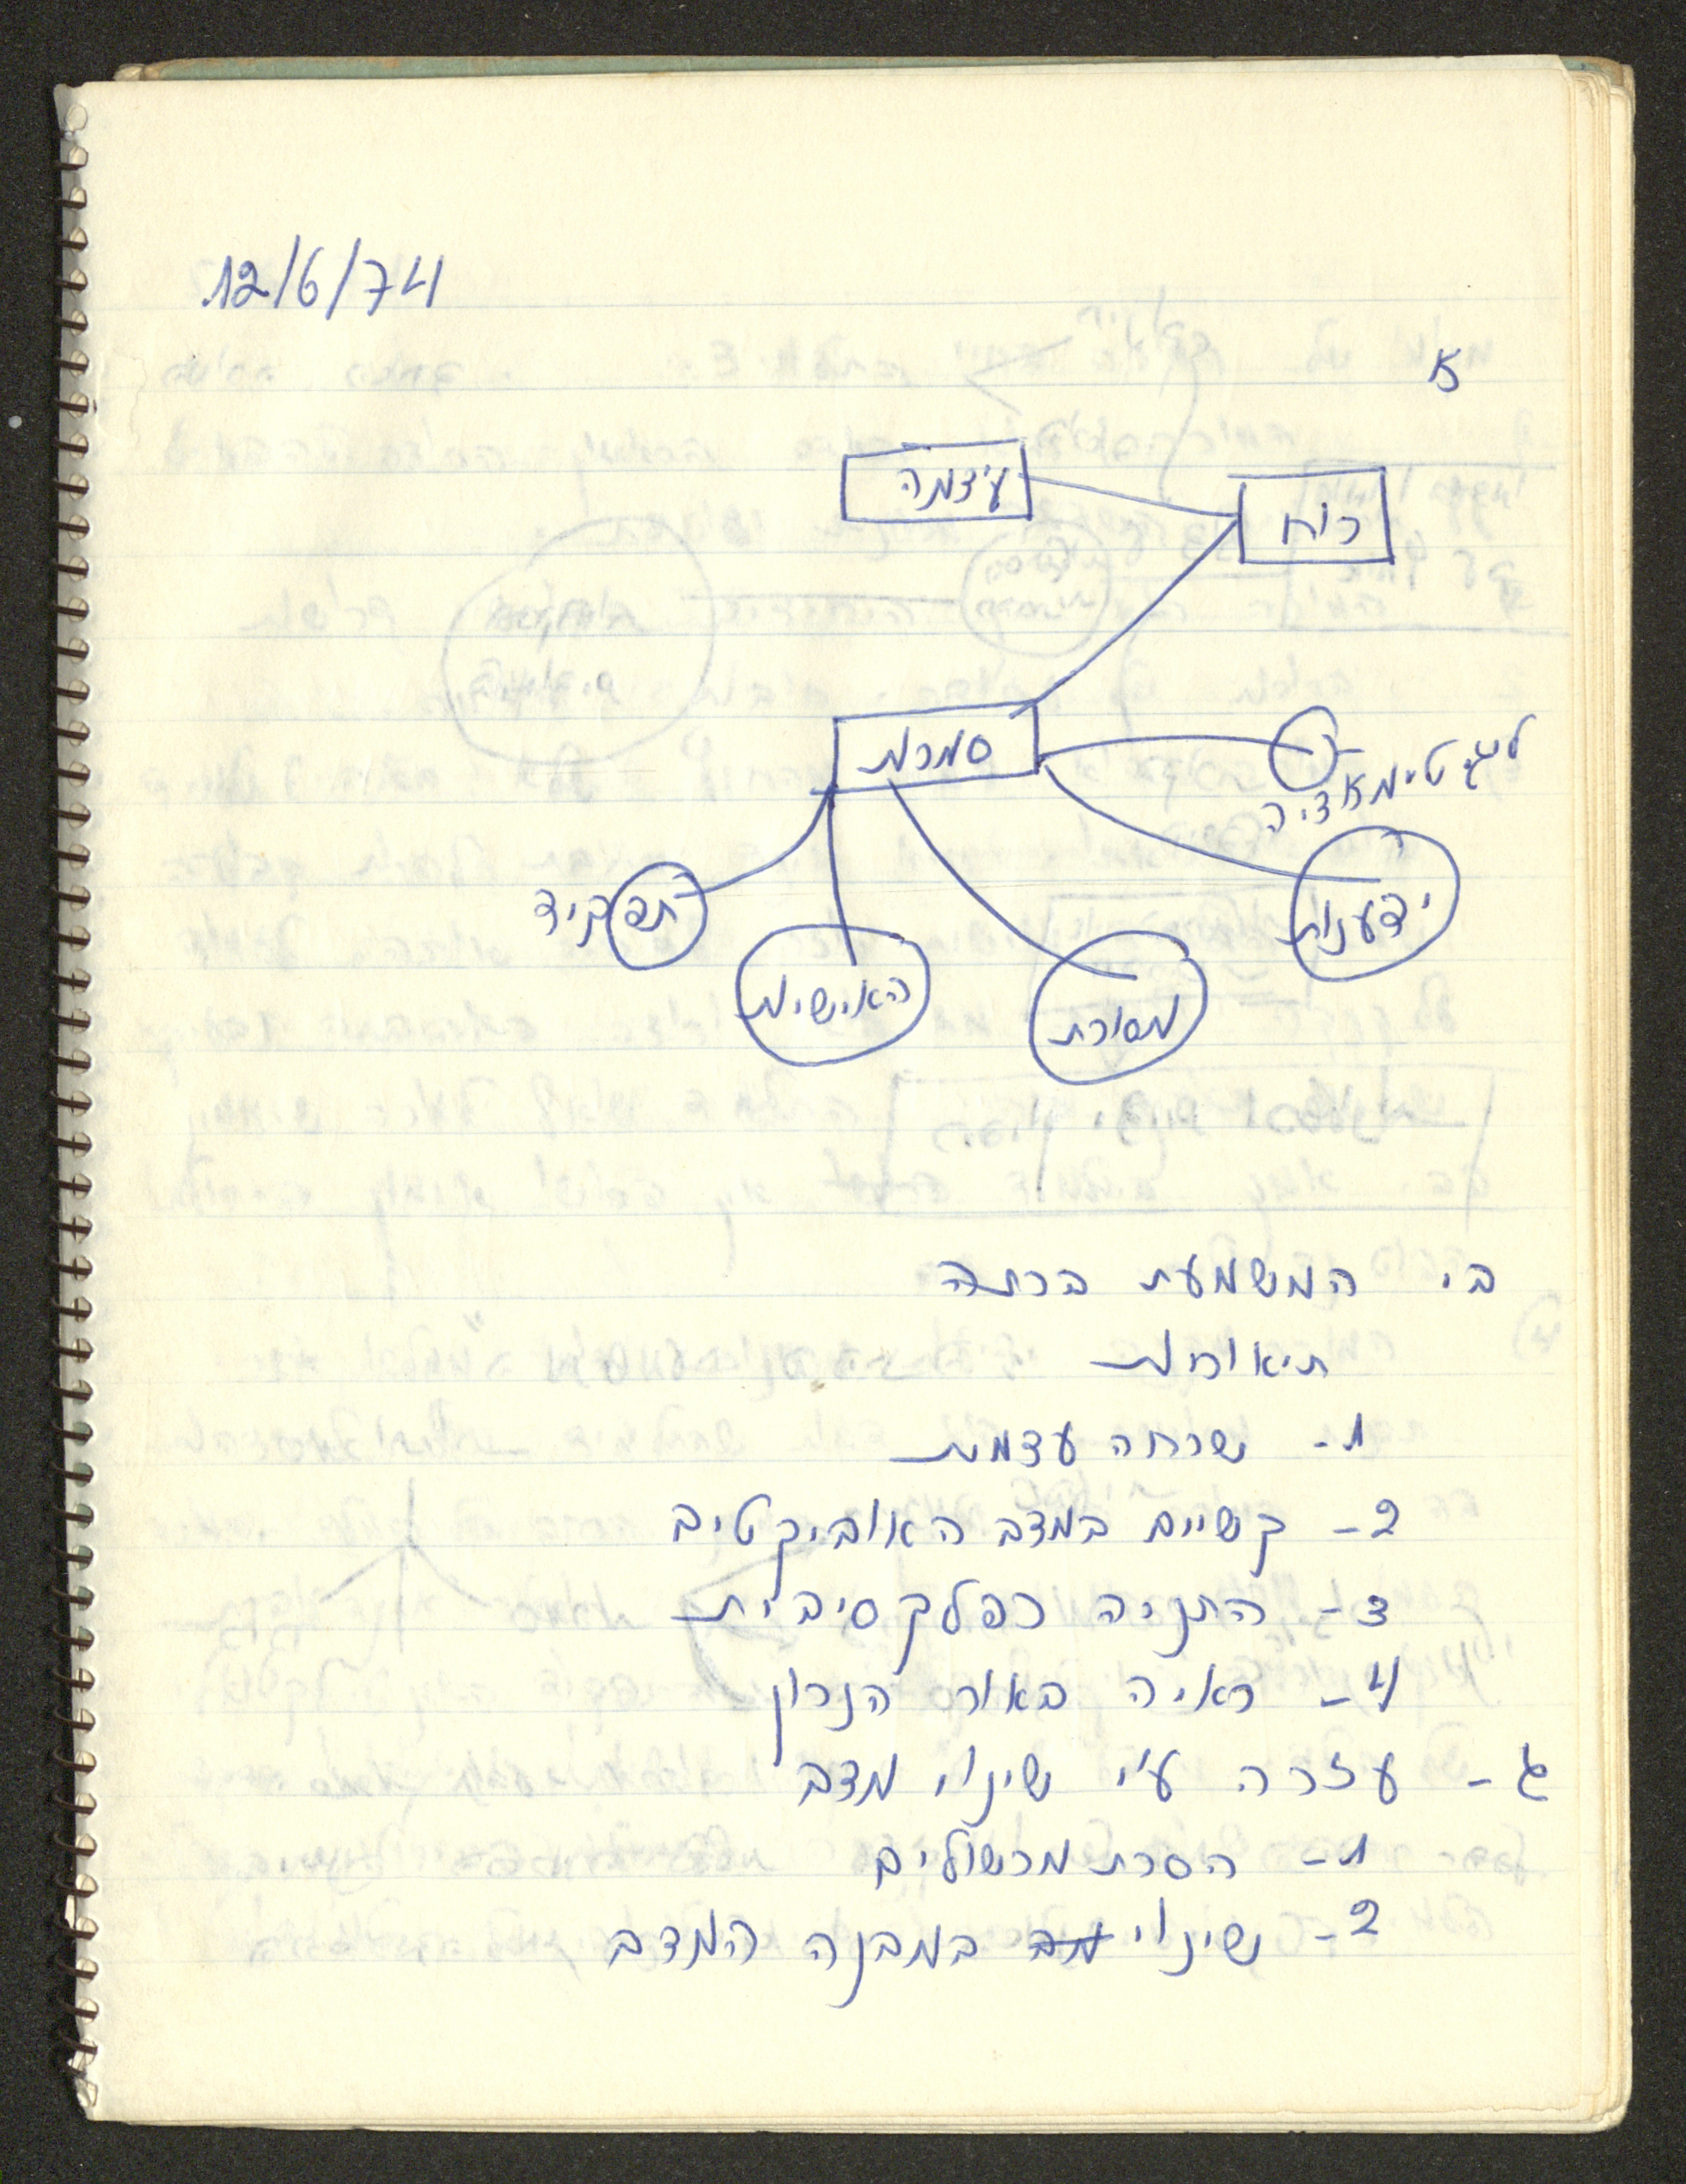 12/6/74
א
עצמה
כוח
סמכות
לגיטימאציה
ידענות
תפקיד
האישיות
מסורת
ב. המשמעת בכתה
תיאוריות
1- שכחה עצמית
2- קשיים במצב האוביקטיב
3- התניה רפלקסיבית
4- ראיה באור הנכון
ג- עזרה ע"י שינוי מצב
1- הסרת מכשולים
2- שינוי מב במבנה המצב